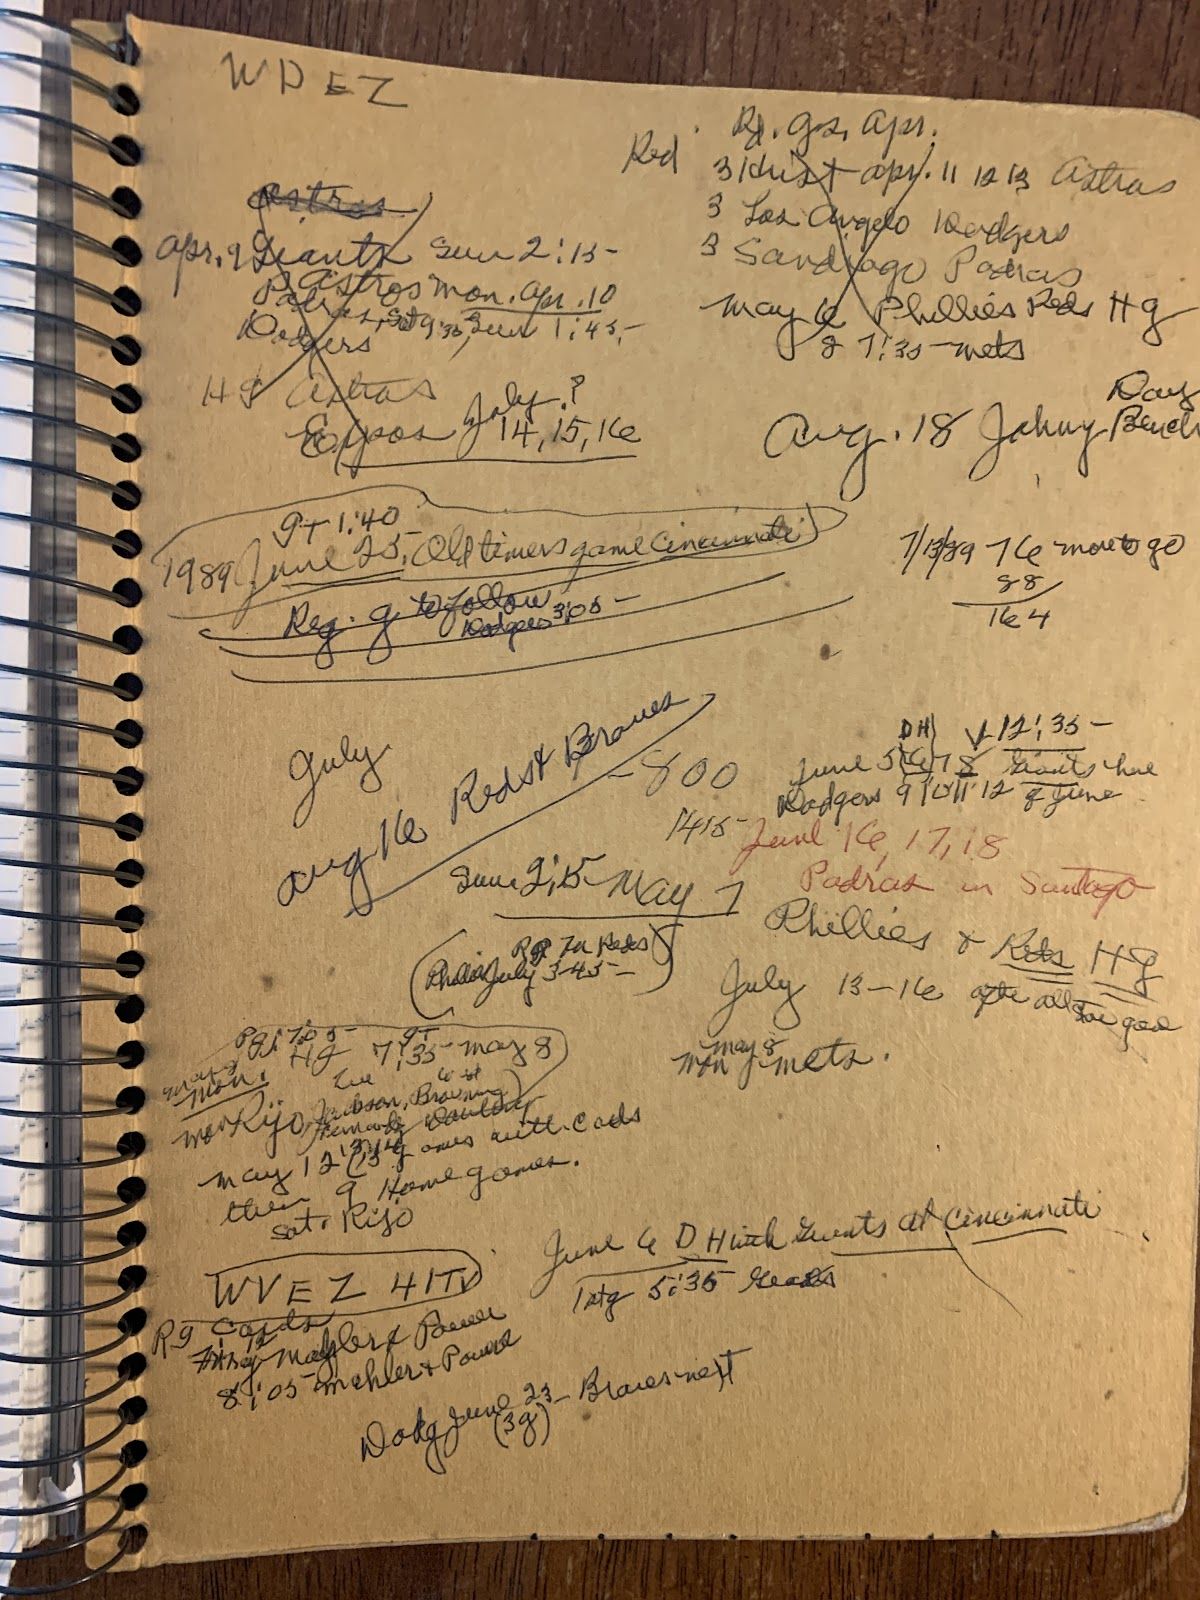 WDEZ
Rd. gs. Apr.
Red
3 Hust Apr. 11 12 13 Astros
3 Los Angelo Dodgers
3 Sandiago Padras
May 6 Phillies Reds H g
8 7:35- mets
Astros
Apr. 9 Giants Sun 2:15-
Astros mon. Apr. 10
Padres, Sat 9:35, Sun 1:45-
Dodgers
H g Astros
Expos July ?
14, 15, 16
Aug. 18 Johny Bench
Day
gt 1:40
1989 June 25, Old timers game Cincinnati
Reg. g to follow
Dodgers 3:05-
7/13/89 76 more to go
88
164
July
Aug 16 Reds & Braves
-800
1415-
DH 12:35-
June 5 6 7 8 Giants here
Dodgers 9 10 11 12 of June
June 16, 17, 18
Padras in Santago
Sun 2:15- May 7
Phillies & Reds H g
July 13-16 after all star game
May 8
mon mets.
7 Reds
July 3-45-
7:05- gt
Mon. Hg 7:35- May 8
Rijo Jackson, Browning
May 12 13 14 games with Cads
then 9 Home games.
Sat. Rijo
WVEZ 41TV
Rg Cards
Mahler & Power
8:05- Mehler & Power
June 6 D H with Giants at Cincinnati
1stg 5:35
Dodg June 23- Braves next
(3g)